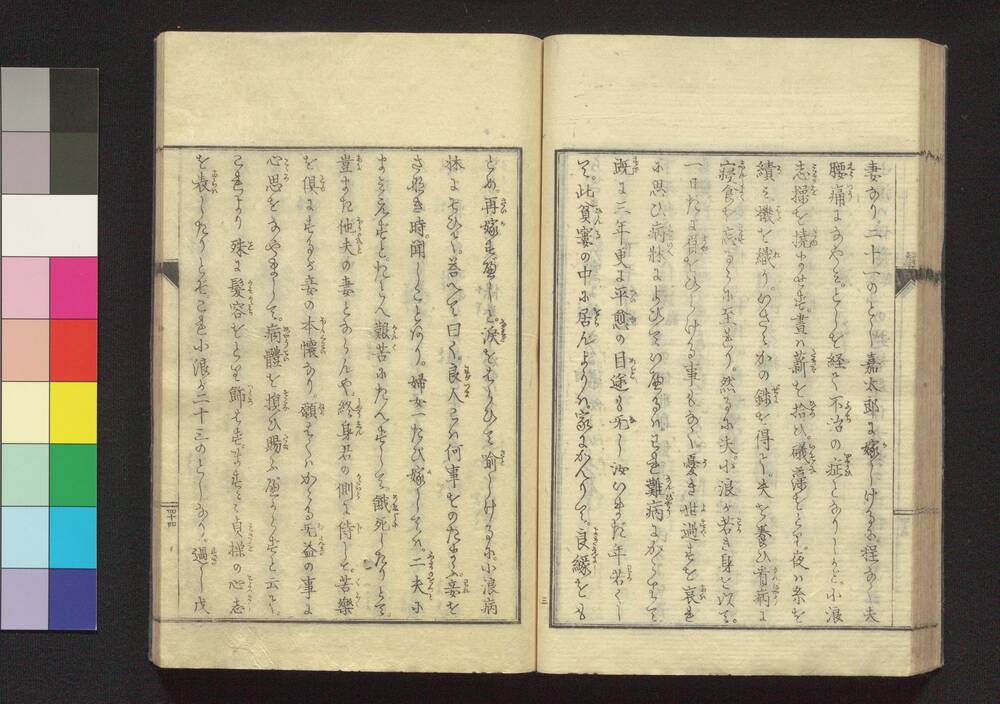 妻なり。二十一のとし嘉太郎に嫁しけるに程なく夫
腰痛になやみ。とし を経て不治の症となりしかど。小浪
志操を撓まさず。晝ハ薪を拾ひ。礒藻をとり。夜ハ糸を
績ミ機を織り。いさゝかの錢を得て。夫を養ひ看病に
寝食も忘るゝに至れり。然るに夫。小浪が若き身を以て。
一日だに眉をひらける事もなく憂き世過すを哀れ
に思ひ病牀によびていへるハ。われ難病にかゝりて
既に三年更に平愈の目途も旡し汝いまだ年若くし
て。此貧窶の中に居んよりハ家にかへりて。良縁をも
とめ。再嫁すべしと。涙をはらひて諭しけるに小浪病
牀によりひて。答へて曰く。良人ハ何事をのたまふ。妾を
さなき時。聞しことあり。婦女一たび嫁してハ。二夫に
まみえずと。たとへ艱苦にたへずして。餓死したりとて。
豈また他夫の妻とならんや。終身君の側に侍して。苦樂
を倶にするが妾の本懐なり。願くハかゝる旡益の事に
心思をなやまして。病體を損ひ賜ふべからずと云て。
これより殊に髮容をとり飾らず。ますます貞操の心志
を表したりとぞこれ小浪が二十三のとしなり。過し戊
四十四
三